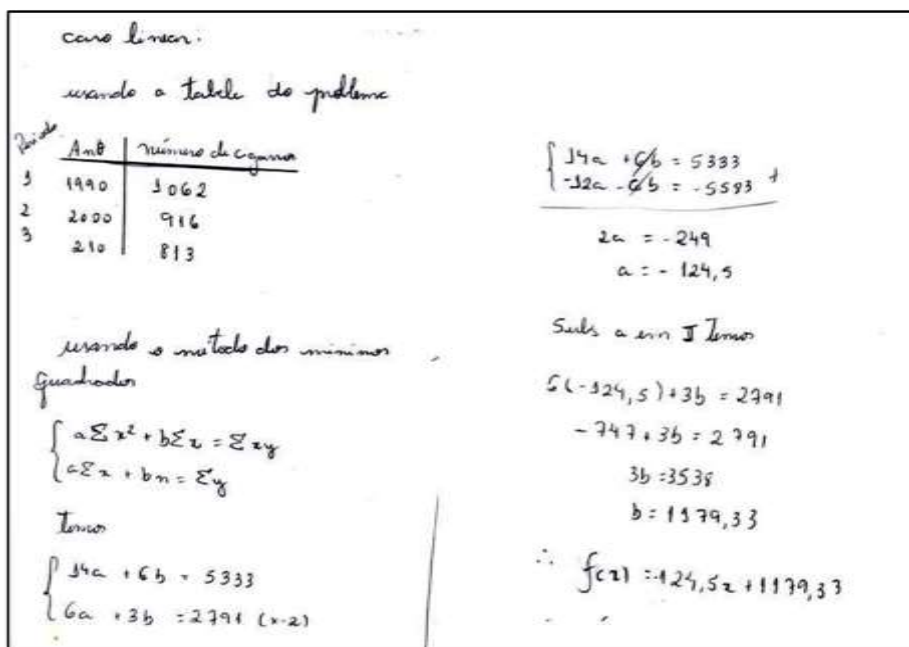 caso linear:
usando a tabela do problema
Período
Ano número de cigarros
1 1990 1062
2 2000 916
3 210 813
usando o método dos mínimos
quadrados
{ a Σ x² + b Σ x = Σ xy
{ a Σ x + bn = Σ y
Temos
{ 14a + 6b = 5333
{ 6a + 3b = 2791 (x-2)
{ 14a + 6b = 5333
{ -12a - 6b = -5583 +
2a = -249
a = -124,5
Subs a em II Temos
6(-124,5) + 3b = 2791
-747 + 3b = 2791
3b = 3538
b = 1179,33
∴ f(x) = -124,5x + 1179,33